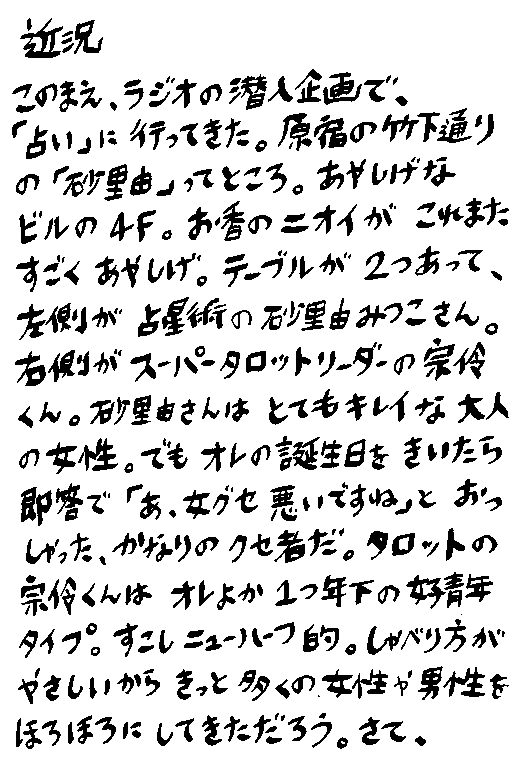 近況
このまえ、ラジオの潜入企画で、
「占い」に行ってきた。原宿の竹下通り
の「砂里由」ってところ。あやしげな
ビルの4F。お香のニオイがこれまた
すごくあやしげ。テーブルが2つあって、
左側が占星術の砂里由みつこさん。
右側がスーパータロットリーダーの宗伶
くん。砂里由さんはとてもキレイな大人
の女性。でもオレの誕生日をきいたら
即答で「あ、女グセ悪いですね」とおっ
しゃった、かなりのクセ者だ。タロットの
宗伶くんはオレよか1つ年下の好青年
タイプ。すこしニューハーフ的。しゃべり方が
やさしいからきっと多くの女性や男性を
ほろほろにしてきただろう。さて、